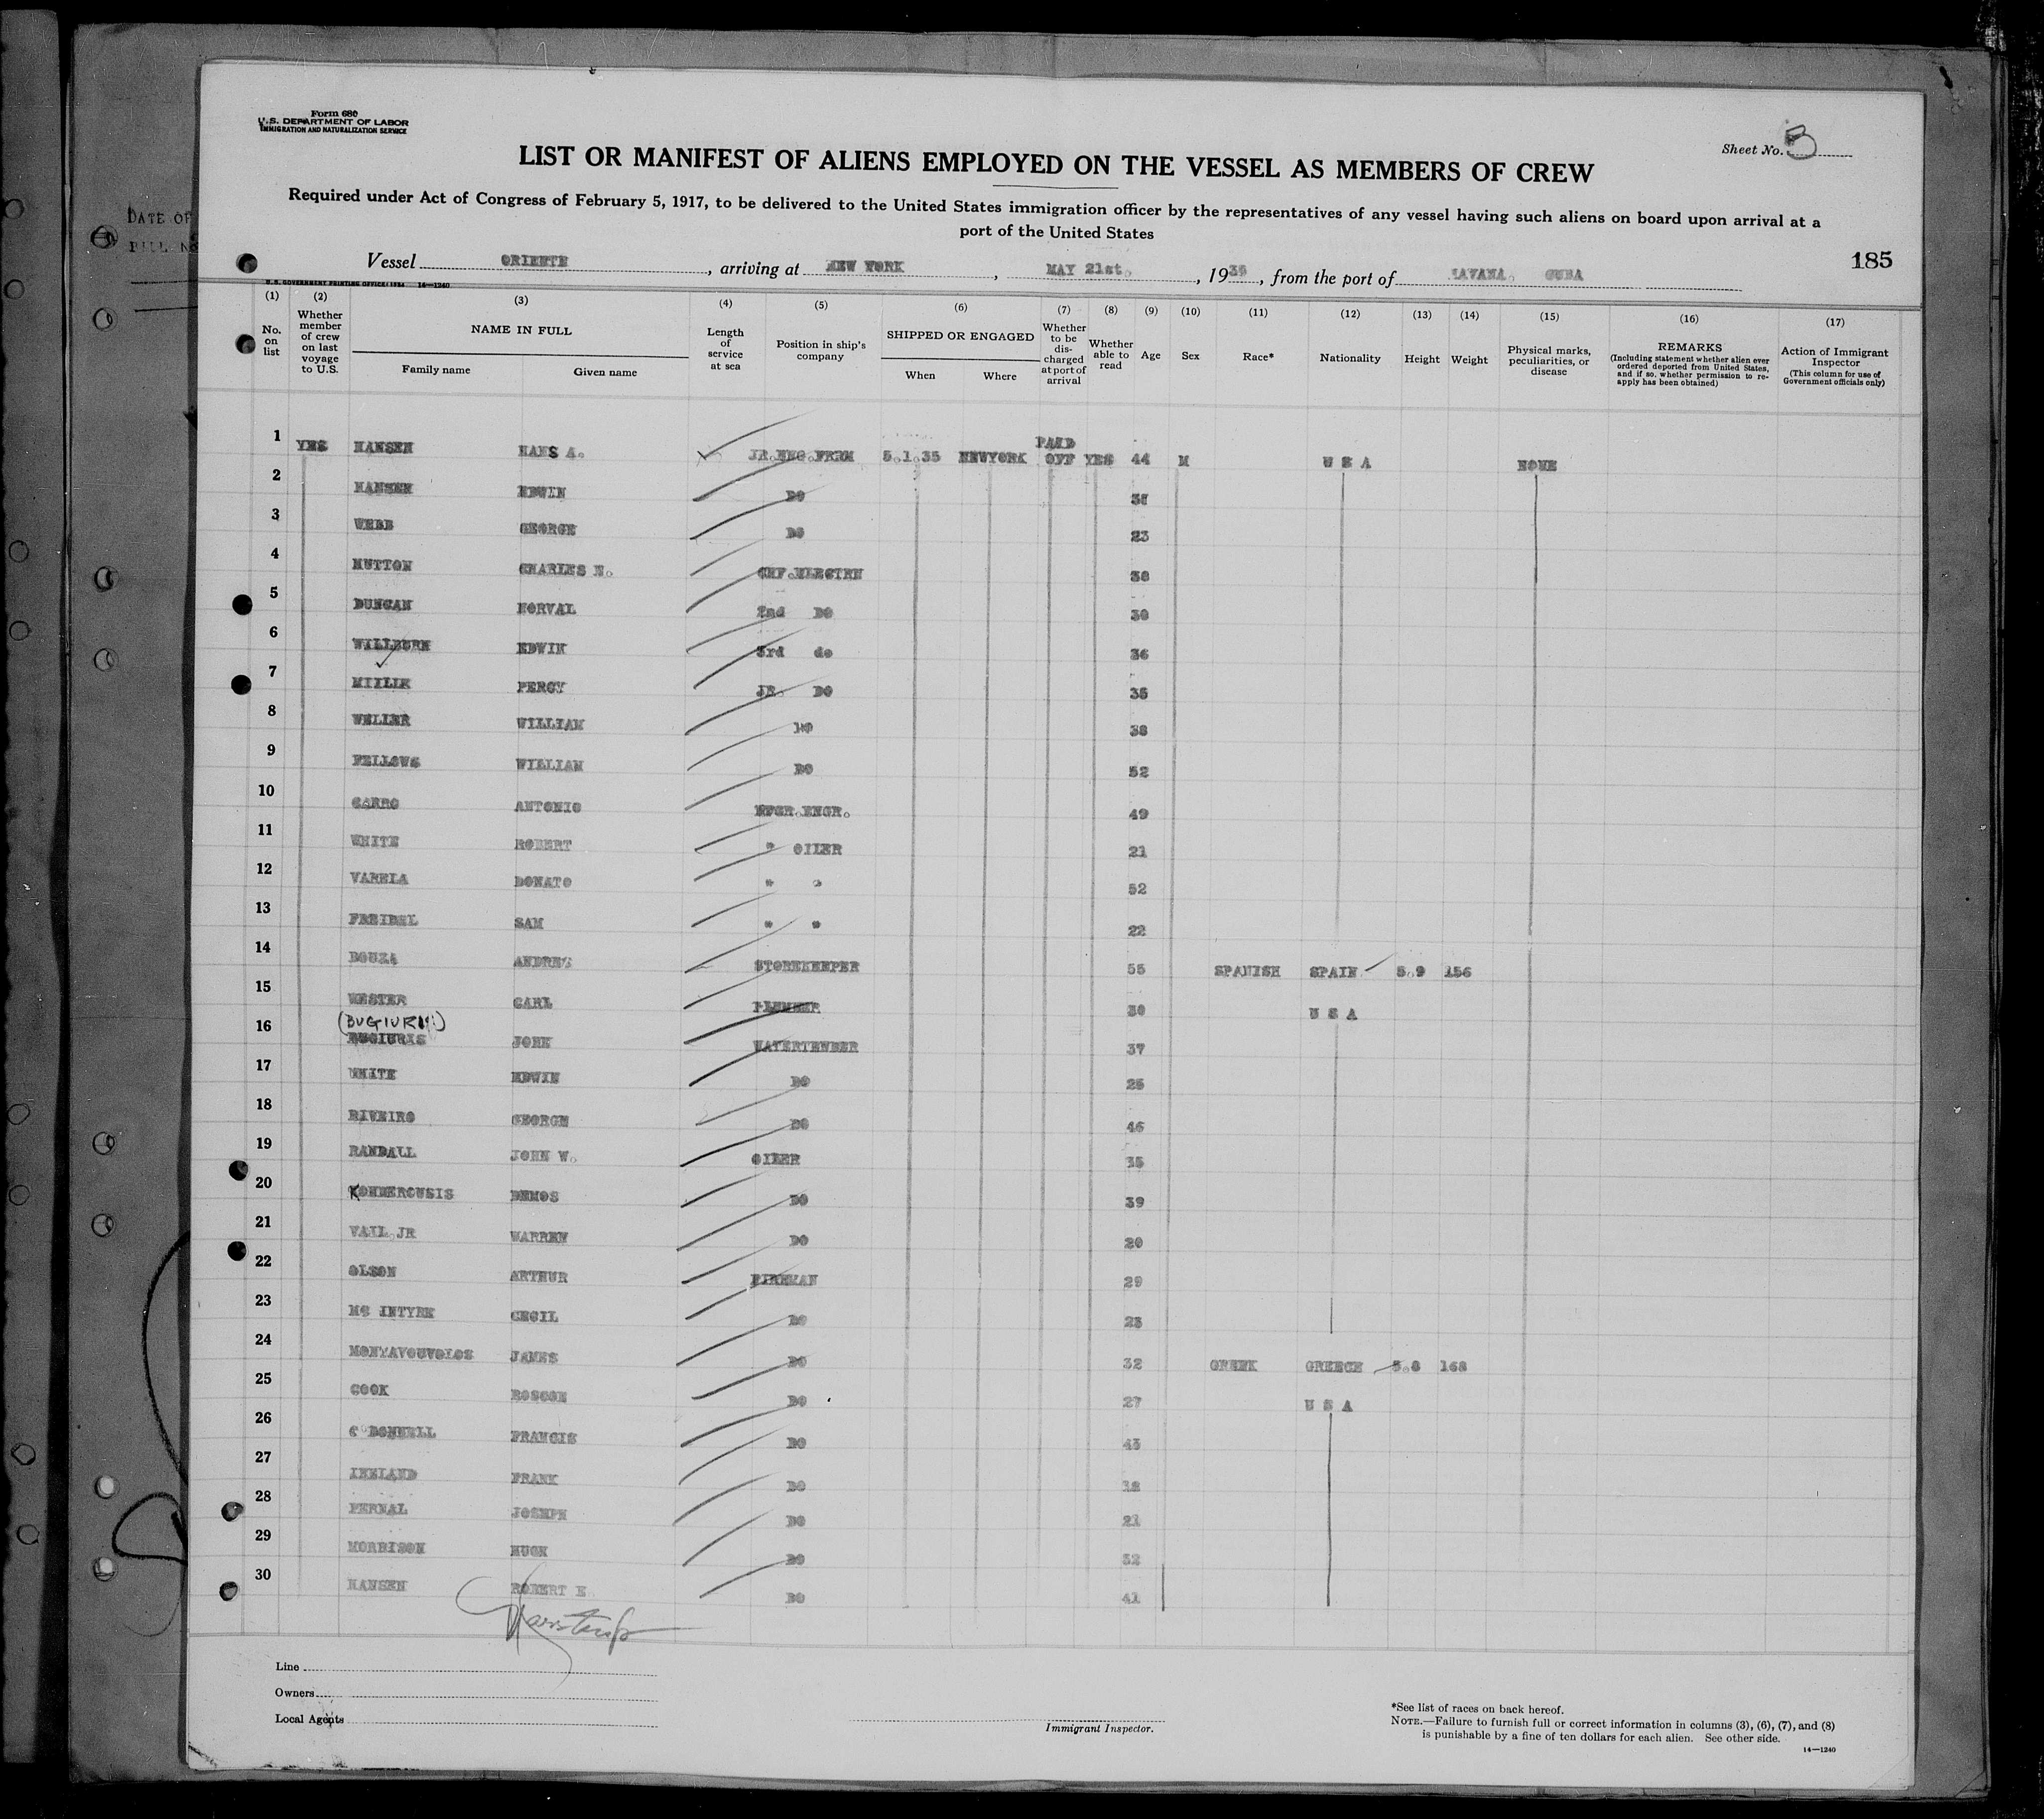 DATE OF
Form 680
U.S. DEPARTMENT OF LABOR
IMMIGRATION AND NATURALIZATION SERVICE
Sheet No. 5
LIST OR MANIFEST OF ALIENS EMPLOYED ON THE VESSEL AS MEMBERS OF CREW
Required under Act of Congress of February 5, 1917, to be delivered to the United States immigration officer by the representatives of any vessel having such aliens on board upon arrival at a
port of the United States
185
Vessel ORIENTE, arriving at NEW YORK, MAY 21st. 1935, from the port of HAVANA. CUBA
U.S. GOVERNMENT PRINTING OFFICE: 1934 14—1240
(1) (2) (3) (4) (5) (6) (7) (8) (9) (10) (11) (12) (13) (14) (15) (16) (17)
No. on list
Whether member of crew on last voyage to U.S.
NAME IN FULL
Family name Given name
Length of service at sea
Position in ship's company
SHIPPED OR ENGAGED
When Where
Whether to be discharged at port of arrival
Whether able to read
Age
Sex
Race*
Nationality
Height
Weight
Physical marks, peculiarities, or disease
REMARKS
(Including statement whether alien ever ordered deported from United States, and if so, whether permission to reapply has been obtained)
Action of Immigrant Inspector
(This column for use of Government officials only)
1 YES HANSEN HANS A. 5.1.35 NEWYORK PAID OFF YES 44 M U S A NONE
2 HANSEN EDWIN DO
3 WEBB GEORGE DO 23
4 HUTTON CHARLES N. CHF.ELECTRN
5 DUNCAN NORVAL 2nd DO 30
6 WILLBURN EDWIN 3rd do 36
7 PERCY JR. DO 35
8 WELLER WILLIAM DO 38
9 FELLOWS WILLIAM DO 52
10 CARRO ANTONIO ENGR. 49
11 WHITE ROBERT " OILER 21
12 VARELA DONATO " " 52
13 FREIDEL SAM " " 22
14 BOUZA ANDRES STOREKEEPER 55 SPANISH SPAIN 5.9 156
15 WESTER CARL PLUMBER 30 U S A
(BUGIURIS)
16 BUGIURIS JOHN WATERTENDER 37
17 WHITE EDWIN DO 25
18 RIVEIRO GEORGE DO 46
19 RANDALL JOHN W. OILER 35
20 DEMOS DO 39
21 VAIL.JR WARREN DO 20
22 OLSON ARTHUR FIREMAN 29
23 MC INTYRE CECIL DO 23
24 JAMES DO 32 GREEK GREECE 5.8 168
25 COOK ROSCOE DO 27 U S A
26 O'DONNELL FRANCIS DO 43
27 IRELAND FRANK DO
28 PERNAL JOSEPH DO 21
29 MORRISON HUGH DO 52
30 HANSEN ROBERT E. DO 41
Line
Owners
Local Agents
Immigrant Inspector.
*See list of races on back hereof.
NOTE.—Failure to furnish full or correct information in columns (3), (6), (7), and (8)
is punishable by a fine of ten dollars for each alien. See other side.
14—1240